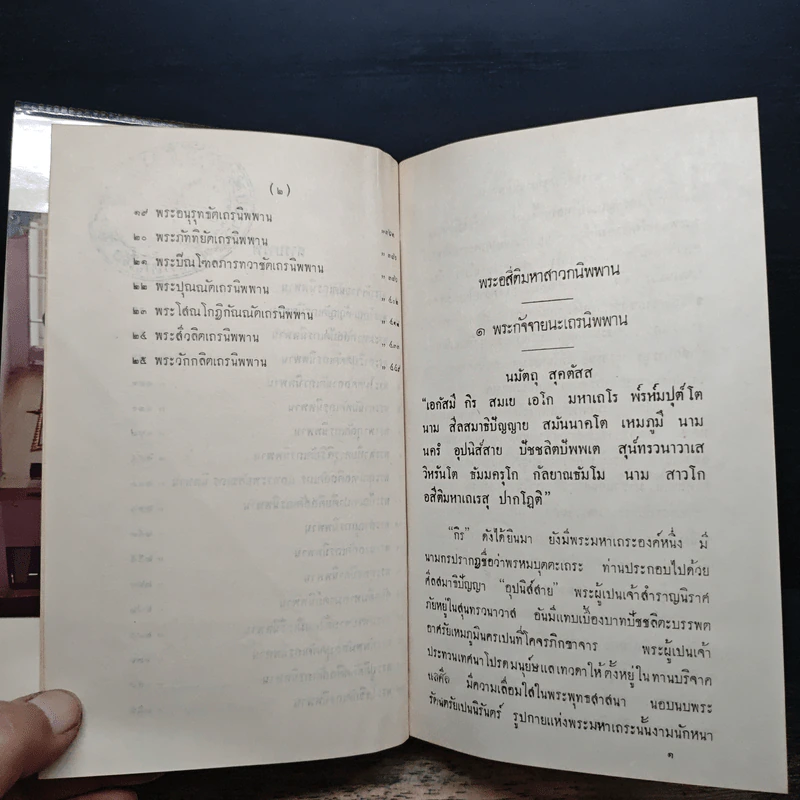 (๒)
๑๙ พระอนุรุทธัตเถรนิพพาน
๒๐ พระภัททิยัตเถรนิพพาน
๒๑ พระปิณโฑลภารทวาชัตเถรนิพพาน
๒๒ พระปุณณัตเถรนิพพาน
๒๓ พระโสณโกฏิกัณณัตเถรนิพพาน
๒๔ พระสีวลิตเถรนิพพาน
๒๕ พระวักกลิตเถรนิพพาน
พระอสีติมหาสาวกนิพพาน
๑ พระกัจจายนะเถรนิพพาน
นมัตถุ สุคตัสส
“เอกัสมึ กิร สมเย เอโก มหาเถโร พ๎รห๎มปุต๎โต
นาม สีลสมาธิปัญญาย สมันนาคโต เหมภูมึ นาม
นครํ อุปนิส์สาย ปัชชลิตปัพพเต สุน์ทรวนาวาเส
วิหรันโต ธัมมครุโก กัลยาณธัมโม นาม สาวโก
อสีติมหาเถเรสุ ปากโฏติ”
“กิร” ดังได้ยินมา ยังมีพระมหาเถระองค์หนึ่ง มี
นามกรปรากฏชื่อว่าพรหมบุตตะเถระ ท่านประกอบไปด้วย
ศีลสมาธิปัญญา “อุปนิส์สาย” พระผู้เปนเจ้าสำราญนิราศ
ภัยหยู่ในสุนทรวนาวาส อันมีแทบเบื้องบาทปัชชลิตะบรรพต
อาศรัยเหมภูมินครเปนที่โคจรภิกขาจาร พระผู้เปนเจ้า
ประทวนเทศนาโปรดมนุษย์แลเทวดาให้ตั้งหยู่ในทานบริจาค
มีความเลื่อมใสในพระพุทธสาสนา นอบนบพระ
รัตนตรัยเปนนิรันตร์ รูปกายแห่งพระมหาเถระนั้นงามนักหนา
๑